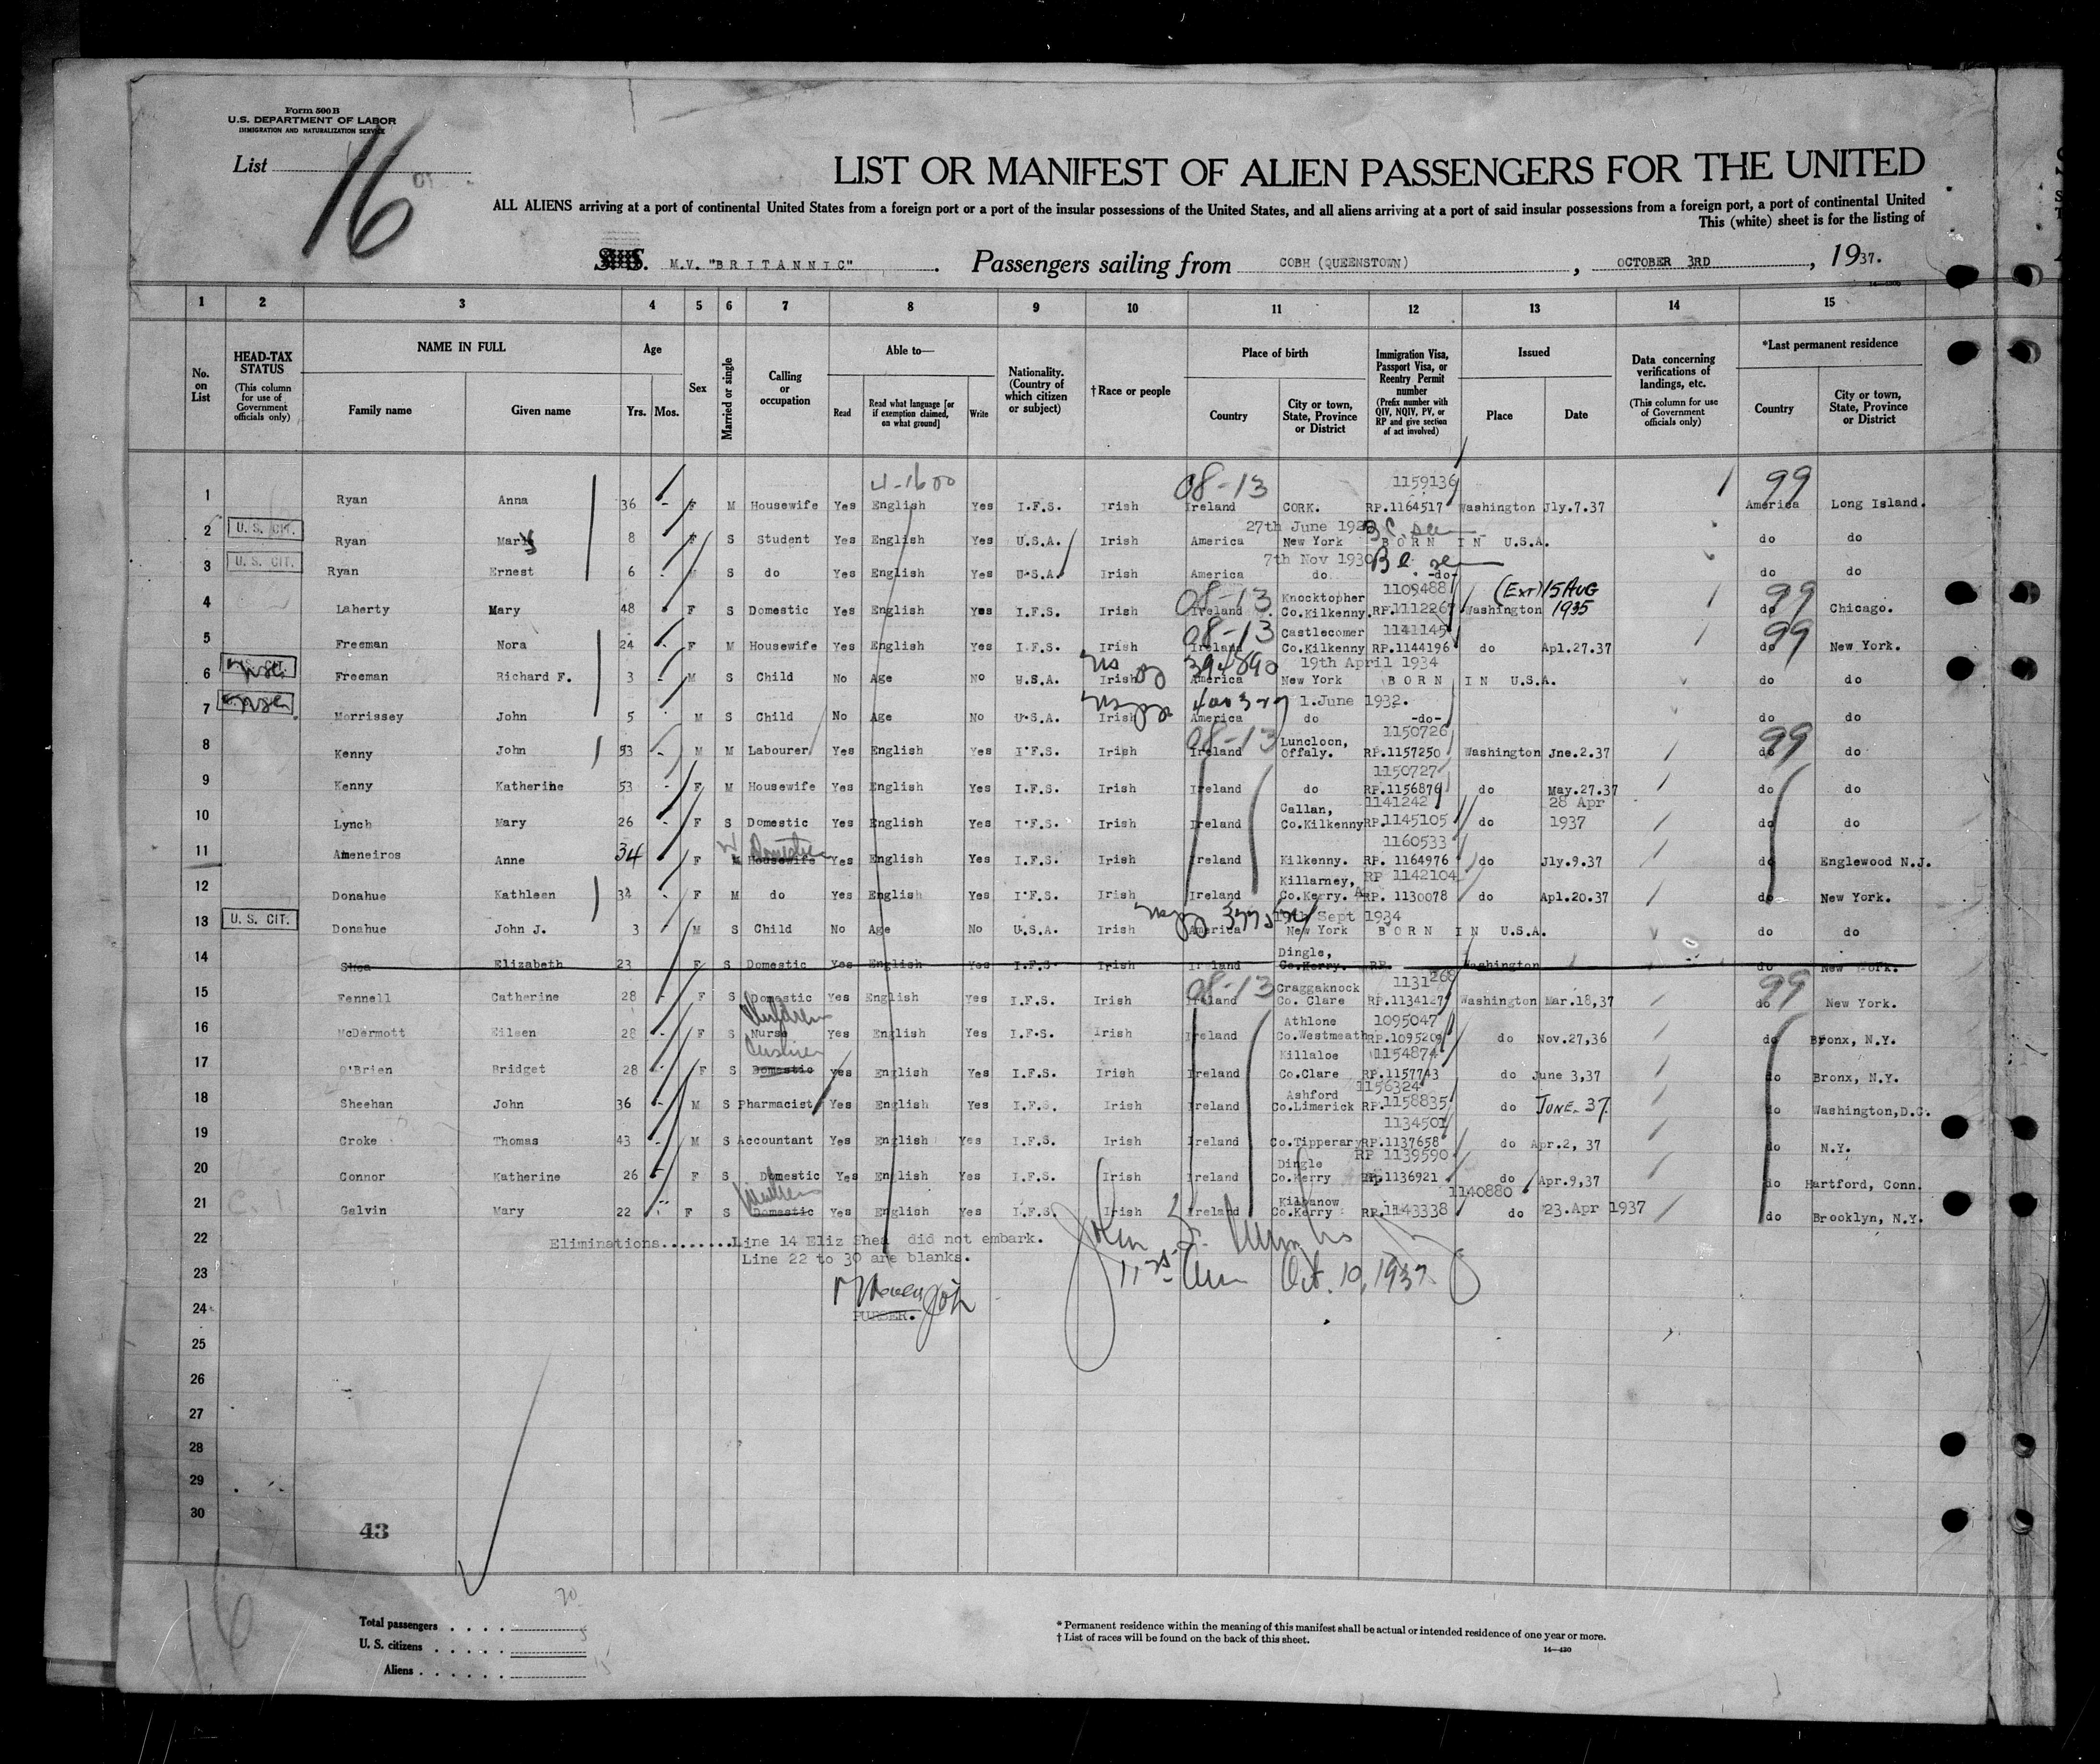 Form 500 B
U.S. DEPARTMENT OF LABOR
IMMIGRATION AND NATURALIZATION SERVICE
List 16
LIST OR MANIFEST OF ALIEN PASSENGERS FOR THE UNITED
ALL ALIENS arriving at a port of continental United States from a foreign port or a port of the insular possessions of the United States, and all aliens arriving at a port of said insular possessions from a foreign port, a port of continental United
This (white) sheet is for the listing of
M.V. "BRITANNIC". Passengers sailing from COBH (QUEENSTOWN), OCTOBER 3RD, 1937.
14—430b
1 2 3 4 5 6 7 8 9 10 11 12 13 14 15
No. on List
HEAD-TAX STATUS (This column for use of Government officials only)
NAME IN FULL Family name Given name
Age Yrs. Mos.
Sex
Married or single
Calling or occupation
Able to— Read Read what language [or if exemption claimed, on what ground] Write
Nationality. (Country of which citizen or subject)
†Race or people
Place of birth Country City or town, State, Province or District
Immigration Visa, Passport Visa, or Reentry Permit number (Prefix number with QIV, NQIV, PV, or RP and give section of act involved)
Issued Place Date
Data concerning verifications of landings, etc. (This column for use of Government officials only)
*Last permanent residence Country City or town, State, Province or District
4-1600 08-13 1159136 99
1 Ryan Anna 36 - F M Housewife Yes English Yes I.F.S. Irish Ireland CORK. RP.1164517 Washington Jly.7.37 America Long Island.
27th June
2 U. S. CIT. Ryan Mary 8 F S Student Yes English Yes U.S.A. Irish America New York BORN IN U.S.A. do do
7th Nov 1930
3 U. S. CIT. Ryan Ernest 6 - M S do Yes English Yes U.S.A. Irish America do -do- do do
08-13 Knocktopher 1109488 (Ext) 15 AUG 99
4 Laherty Mary 48 F S Domestic Yes English Yes I.F.S. Irish Ireland Co.Kilkenny. RP.1112267 Washington 1935 do Chicago.
08-13 Castlecomer 1141145 99
5 Freeman Nora 24 - F M Housewife Yes English Yes I.F.S. Irish Ireland Co.Kilkenny RP.1144196 do Apl.27.37 do New York.
19th April 1934
6 U.S. CIT. Freeman Richard F. 3 - M S Child No Age No U.S.A. Irish America New York BORN IN U.S.A. do do
1.June 1932.
7 Morrissey John 5 M S Child No Age No U.S.A. Irish America do -do- do do
08-13 Luncloon, 1150726 99
8 Kenny John 53 - M M Labourer Yes English Yes I.F.S. Irish Ireland Offaly. RP.1157250 Washington Jne.2.37 do do
1150727
9 Kenny Katherine 53 - F M Housewife Yes English Yes I.F.S. Irish Ireland do RP.1156876 do May.27.37 do do
Callan, 1141242 28 Apr
10 Lynch Mary 26 - F S Domestic Yes English Yes I.F.S. Irish Ireland Co.Kilkenny RP.1145105 do 1937 do do
Domestic 1160533
11 Ameneiros Anne 34 F M Housewife Yes English Yes I.F.S. Irish Ireland Kilkenny. RP. 1164976 do Jly.9.37 do Englewood N.J.
Killarney, RP 1142104
12 Donahue Kathleen 34 - F M do Yes English Yes I.F.S. Irish Ireland Co.Kerry. RP. 1130078 do Apl.20.37 do New York.
19th Sept 1934
13 U. S. CIT. Donahue John J. 3 - M S Child No Age No U.S.A. Irish America New York BORN IN U.S.A. do do
Dingle,
14 Shea Elizabeth 23 F S Domestic Yes English Yes I.F.S. Irish Ireland Co.Kerry. RP. Washington do New York.
08-13 Craggaknock 1131268 99
15 Fennell Catherine 28 - F S Domestic Yes English Yes I.F.S. Irish Ireland Co. Clare RP.1134127 Washington Mar.18,37 do New York.
Children Athlone 1095047
16 McDermott Eileen 28 - F S Nurse Yes English Yes I.F.S. Irish Ireland Co.Westmeath RP.1095209 do Nov.27,36 do Bronx, N.Y.
Killaloe 1154874
17 O'Brien Bridget 28 - F S Domestic yes English Yes I.F.S. Irish Ireland Co.Clare RP.1157743 do June 3,37 do Bronx, N.Y.
Ashford 1156324
18 Sheehan John 36 - M S Pharmacist Yes English Yes I.F.S. Irish Ireland Co.Limerick RP.1158835 do JUNE. 37. do Washington,D.C.
1134501
19 Croke Thomas 43 - M S Accountant Yes English Yes I.F.S. Irish Ireland Co.Tipperary RP.1137658 do Apr.2, 37 do N.Y.
Dingle RP 1139590
20 Connor Katherine 26 - F S Domestic Yes English Yes I.F.S. Irish Ireland Co.Kerry RP.1136921 do Apr.9,37 do Hartford, Conn.
Kilbanow 1140880
21 Galvin Mary 22 F S Domestic Yes English Yes I.F.S. Irish Ireland Co.Kerry RP.1143338 do 23.Apr 1937 do Brooklyn, N.Y.
22 Eliminations........Line 14 Eliz Shea did not embark.
Line 22 to 30 are blanks.
23 Oct. 10, 1937
24 PURSER.
25
26
27
28
29
30
43
16
Total passengers . . . . 20
U. S. citizens . . . . . 5
Aliens . . . . . . 15
* Permanent residence within the meaning of this manifest shall be actual or intended residence of one year or more.
† List of races will be found on the back of this sheet.
14—430